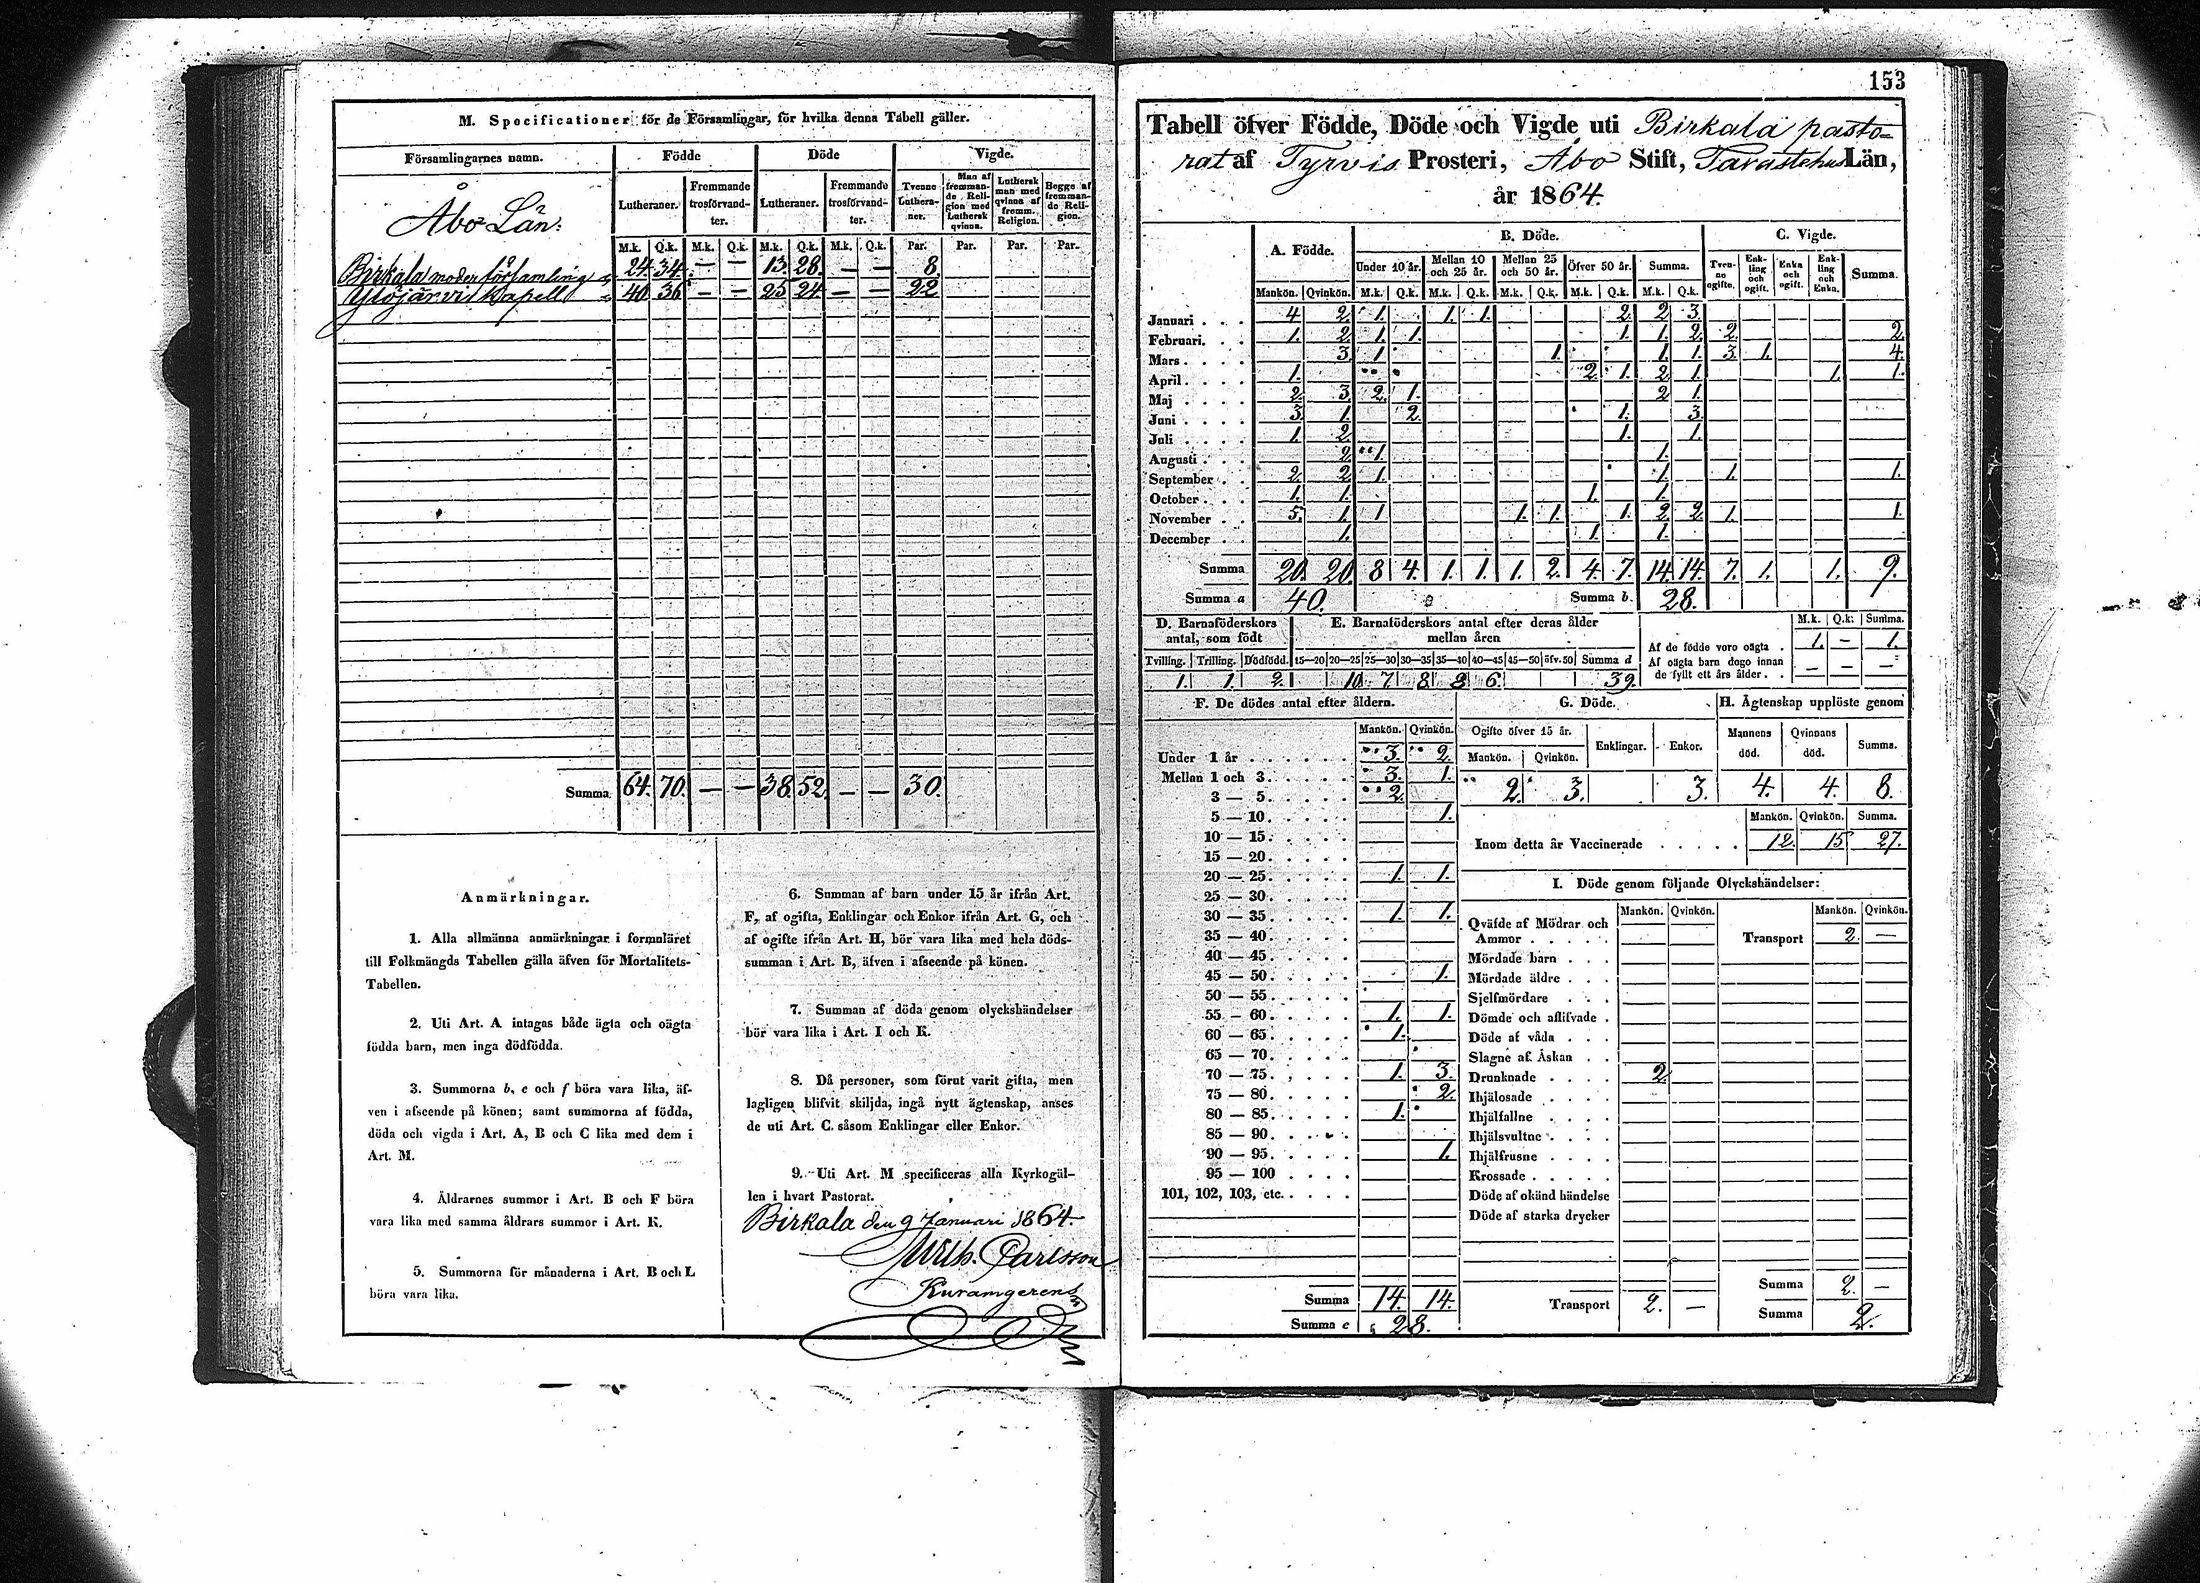 M. Specificationer för de Församlingar, för hvilka denna Tabell gäller.
Församlingarnes namn. Födde Döde Vigde.
Lutheraner. Fremmande trosförvandter. Lutheraner. Fremmande trosförvandter. Tvenne Lutheraner. Man af fremmande Religion med Luthersk qvinna. Luthersk man med qvinna af fremm. Religion. Begge af fremmande Religion.
M.k. Q.k. M.k. Q.k. M.k. Q.k. M.k. Q.k. Par. Par. Par. Par.
Åbo Län:
Birkala moderförsamling 24. 34. — — 13. 28. — — 8.
Ylöjärvi Kapell 40. 36. — — 25. 24. — — 22.
Summa. 64. 70. — — 38. 52. — — 30.
Anmärkningar.
1. Alla allmänna anmärkningar i formuläret
till Folkmängds Tabellen gälla äfven för Mortalitets-
Tabellen.
2. Uti Art. A intagas både ägta och oägta
födda barn, men inga dödfödda.
3. Summorna b, c och f böra vara lika, äf-
ven i afseende på könen; samt summorna af födda,
döda och vigda i Art. A, B och C lika med dem i
Art. M.
4. Åldrarnes summor i Art. B och F böra
vara lika med samma åldrars summor i Art. K.
5. Summorna för månaderna i Art. B och L
böra vara lika.
6. Summan af barn under 15 år ifrån Art.
F, af ogifta, Enklingar och Enkor ifrån Art. G, och
af ogifte ifrån Art. H, bör vara lika med hela döds-
summan i Art. B, äfven i afseende på könen.
7. Summan af döda genom olyckshändelser
bör vara lika i Art. I och K.
8. Då personer, som förut varit gifta, men
lagligen blifvit skiljda, ingå nytt ägtenskap, anses
de uti Art. C. såsom Enklingar eller Enkor.
9. Uti Art. M specificeras alla Kyrkogäl-
len i hvart Pastorat.
Birkala den 9 Januari 1864.
Wilh. Carlsson
153
Tabell öfver Födde, Döde och Vigde uti Birkala pasto-
rat af Tyrvis Prosteri, Åbo Stift, Tavastehus Län,
år 1864.
A. Födde. B. Döde. C. Vigde.
Under 10 år. Mellan 10 och 25 år. Mellan 25 och 50 år. Öfver 50 år. Summa. Tvenne ogifte. Enkling och ogift. Enka och ogift. Enkling och Enka. Summa.
Mankön. Qvinkön. M.k. Q.k. M.k. Q.k. M.k. Q.k. M.k. Q.k. M.k. Q.k.
Januari . . . 4 2. 1. 1. 1. 2. 2. 3.
Februari. . . 1. 2. 1. 1. 1. 1. 2. 2. 2.
Mars . . . . 3. 1 1. 1. 1. 3. 1. 4.
April . . . . 1. 2. 1. 2. 1. 1. 1.
Maj . . . . 2. 3. 2. 1. 2 1.
Juni . . . . 3. 1. 2. 1. 3.
Juli . . . . 1. 2. 1. 1.
Augusti . . . 2. 1. 1.
September . . 2. 2. 1. 1. 1. 1.
October . . . 1. 1. 1. 1.
November . . 5. 1. 1 1. 1. 1. 2. 2. 1. 1.
December . . 1. 1. 1.
Summa 20. 20. 8 4. 1. 1. 1. 2. 4. 7. 14. 14. 7. 1. 1. 9.
Summa a 40. Summa b. 28.
D. Barnaföderskors antal, som födt E. Barnaföderskors antal efter deras ålder mellan åren M.k. Q.k. Summa.
Tvilling. Trilling. Dödfödd. 15—20 20—25 25—30 30—35 35—40 40—45 45—50 öfv. 50 Summa d
1. 1. 2. 10. 7. 8. 8. 6. 39.
Af de födde voro oägta . 1. — 1.
Af oägta barn dogo innan
de fyllt ett års ålder . . — — —
F. De dödes antal efter åldern.
Mankön. Qvinkön.
Under 1 år . . . . . . 3. 2.
Mellan 1 och 3. . . . . . 3. 1.
3 — 5. . . . . . 2.
5 — 10. . . . . . 1.
10 — 15. . . . . .
15 — 20. . . . . .
20 — 25. . . . . . 1. 1.
25 — 30. . . . . .
30 — 35. . . . . . 1. 1.
35 — 40. . . . . .
40 — 45. . . . . .
45 — 50. . . . . . 1.
50 — 55. . . . . .
55 — 60. . . . . . 1. 1.
60 — 65. . . . . . 1.
65 — 70. . . . . .
70 — 75. . . . . . 1. 3.
75 — 80. . . . . . 2.
80 — 85. . . . . . 1.
85 — 90. . . . . .
90 — 95. . . . . . 1.
95 — 100 . . . . .
101, 102, 103, etc. . . . .
Summa 14. 14.
Summa c 28.
G. Döde. H. Ägtenskap upplöste genom
Ogifte öfver 15 år. Enklingar. Enkor. Mannens död. Qvinnans död. Summa.
Mankön. Qvinkön.
2. 3. 3. 4. 4. 8.
Mankön. Qvinkön. Summa.
Inom detta år Vaccinerade . . . . . 12. 15 27.
I. Döde genom följande Olyckshändelser:
Mankön. Qvinkön. Mankön. Qvinkön.
Qväfde af Mödrar och
Ammor . . . . . Transport 2. —
Mördade barn . . .
Mördade äldre . . .
Sjelfmördare . . .
Dömde och aflifvade .
Döde af våda . . .
Slagne af Åskan . .
Drunknade . . . . 2.
Ihjälosade . . . .
Ihjälfallne . . . .
Ihjälsvultne . . . .
Ihjälfrusne . . . .
Krossade . . . . .
Döde af okänd händelse
Döde af starka drycker
Summa 2. —
Transport 2. — Summa 2.